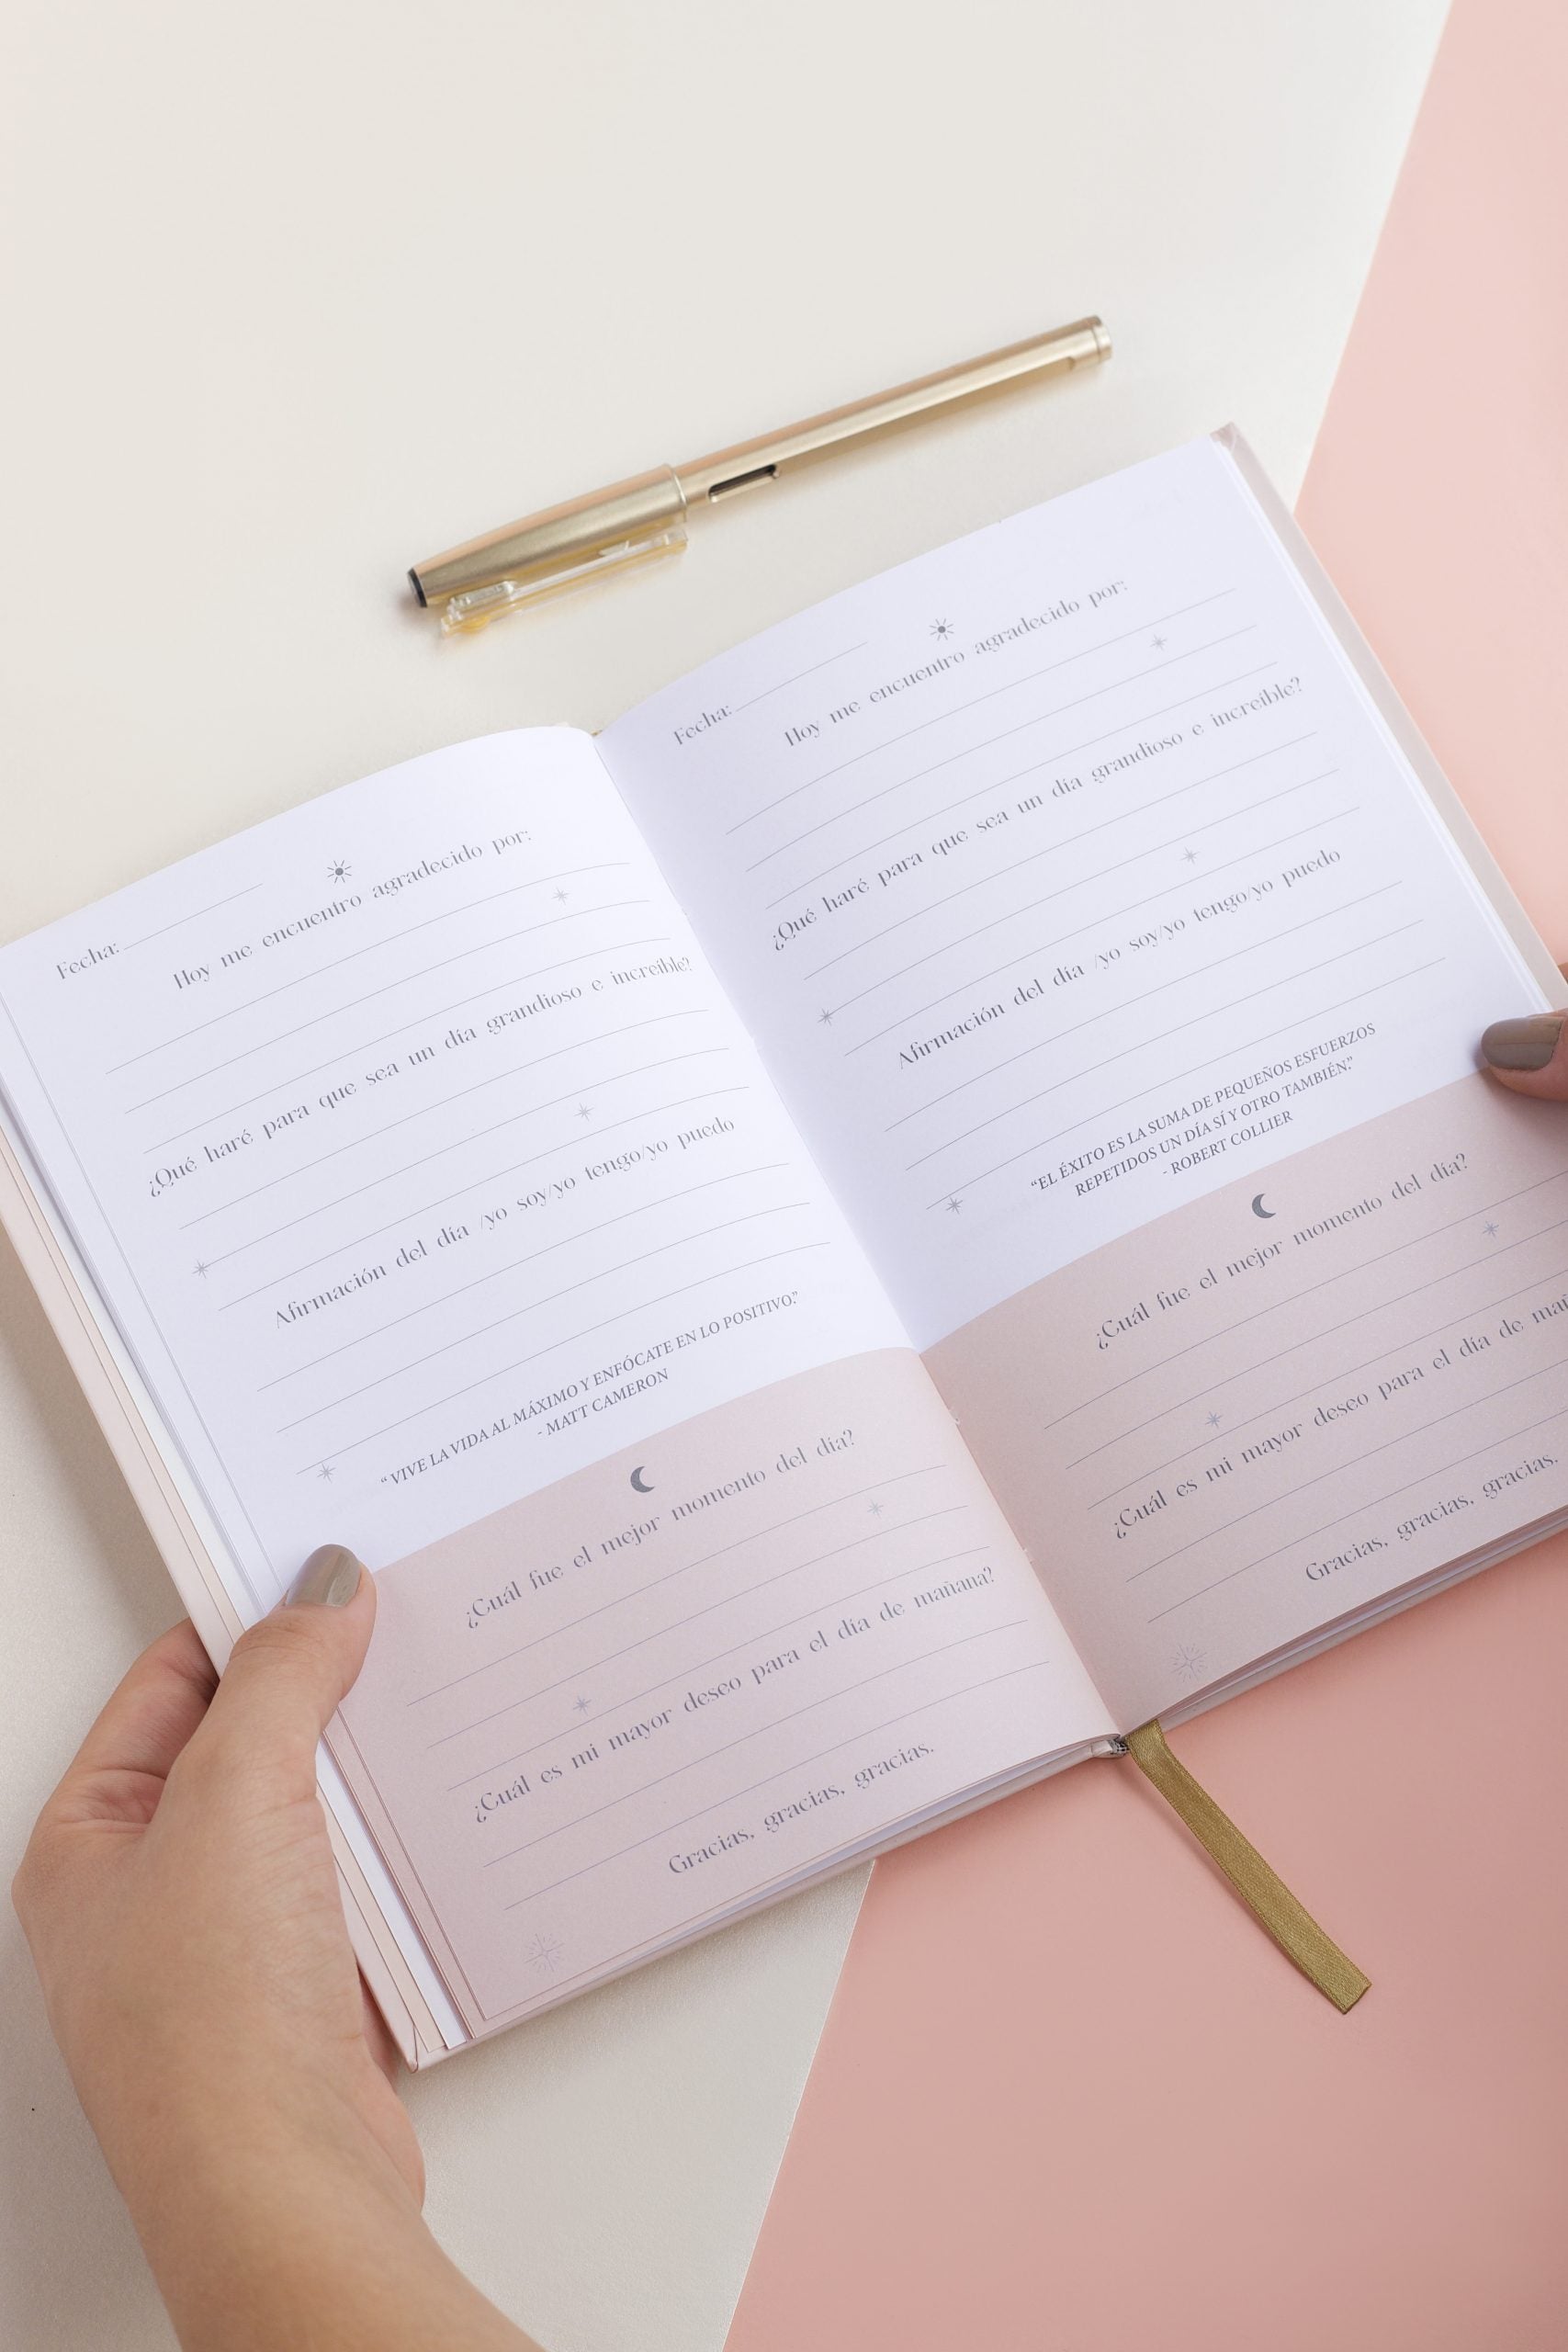 Fecha:
Hoy me encuentro agradecido por:
¿Qué haré para que sea un día grandioso e increíble?
Afirmación del día /yo soy/yo tengo/yo puedo
“ VIVE LA VIDA AL MÁXIMO Y ENFÓCATE EN LO POSITIVO.”
- MATT CAMERON
¿Cuál fue el mejor momento del día?
¿Cuál es mi mayor deseo para el día de mañana?
Gracias, gracias, gracias.
Fecha:
Hoy me encuentro agradecido por:
¿Qué haré para que sea un día grandioso e increíble?
Afirmación del día /yo soy/yo tengo/yo puedo
“EL ÉXITO ES LA SUMA DE PEQUEÑOS ESFUERZOS
REPETIDOS UN DÍA SÍ Y OTRO TAMBIÉN.”
- ROBERT COLLIER
¿Cuál fue el mejor momento del día?
¿Cuál es mi mayor deseo para el día de
Gracias, gracias, gracias.